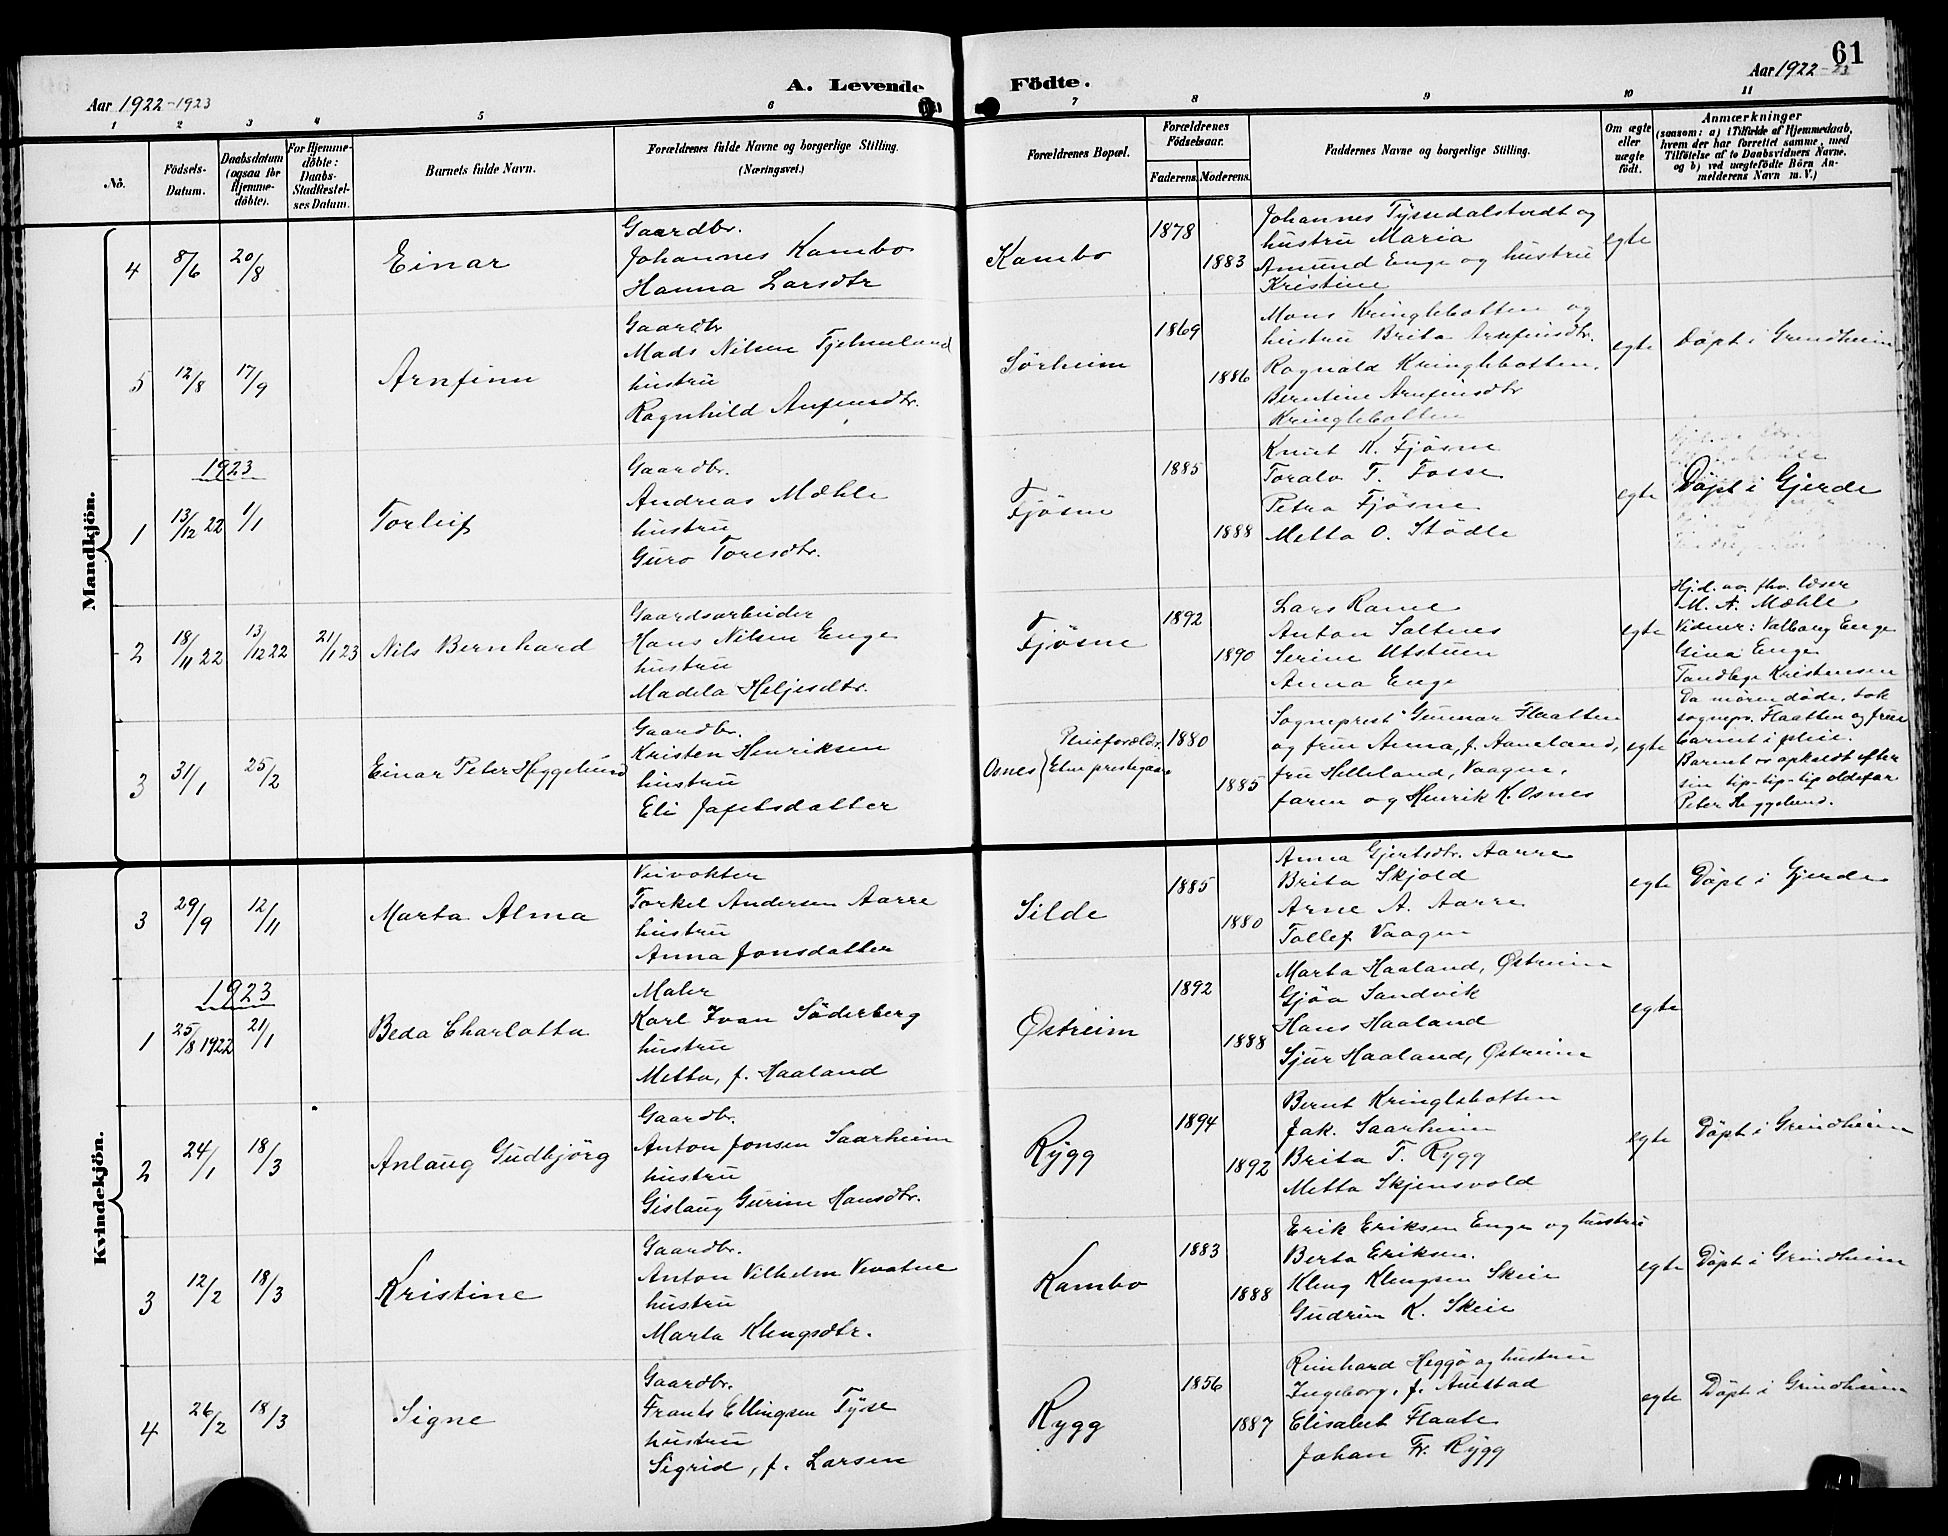 61
Aar 1922-1923
A. Levende Födte.
Aar 1922-23
1 2 3 4 5 6 7 8 9 10 11
No.
Födsels-Datum.
Daabsdatum (ogsaa for Hjemme-döbte).
For Hjemme-döbte: Daabs-Stadfæstel-ses Datum.
Barnets fulde Navn.
Forældrenes fulde Navne og borgerlige Stilling.
(Næringsvei.)
Forældrenes Bopæl.
Forældrenes Födselsaar.
Faderens. Moderens.
Faddernes Navne og borgerlige Stilling.
Om ægte eller uægte födt.
Anmærkninger
(saasom: a) i Tilfælde af Hjemmedaab,
hvem der har forrettet samme, med
Tilföielse af to Daabsvidners Navne,
og b) ved uægtefödte Börn An-
melderens Navn m. V.)
Mandkjön.
4 8/6 20/8 Einar
Gaardbr.
Johannes Kambo
Hanna Larsdtr
Kambo 1878 1883
Johannes Tyssedalstvedt og
hustru Maria
Amund Enge og hustru
Kristine
egte
5 12/8 17/9 Arnfinn
Gaardbr
Mads Nilsen Tjelmeland
hustru
Ragnhild Anfinnsdtr.
Sørheim 1869 1886
Mons Kringlebotten og
hustru Brita Arnfinsdtr.
Ragnald Kringlebotten,
Berntine Arnfinsdtr
Kringlebotten
egte Döpt i Grindheim
1923
1 13/12 22 1/1 Torleif
Gaardbr.
Andreas Mæhle
hustru
Guro Toresdtr.
Fjösne 1885 1888
Knut K. Fjösne
Toralv T. Fosse
Petra Fjösne
Metta O. Stödle
egte Döpt i Gjerde
2 18/11 22 13/12 22 21/1 23 Nils Bernhard
Gaardsarbeider
Hans Nilsen Enge
hustru
Madela Heljesdtr.
Fjösne 1892 1890
Lars Rame
Anton Saltnes
Serine Utstuen
Anna Enge
egte
Hj.d. av fhv. læser
M. A. Mæhle
Vidner: Valborg Enge
Gina Enge
3 31/1 25/2 Einar Peter Heggelund
Gaardbr.
Kristen Henriksen
hustru
Eli Jafetsdatter
Osnes Pleieforældr. Etne prestegaar 1880 1885
Sogneprest Gunnar Flaatten
og frue Anna, f. Aaneland,
fru Helleland, Vaagen,
faren og Henrik K. Osnes
egte
Tandlege Kristensen
Da moren döde, tok
sognepr. Flaatten og frue
barnet i pleie.
Barnet er opkaldt efter
sin tip-tip-tip oldefar
Peter Heggelund.
Kvindekjön.
3 29/9 12/11 Marta Alma
Veivokter
Torkel Andersen Aarre
hustru
Anna Jonsdatter
Silde 1885 1880
Anna Gjertsdtr. Aarre
Brita Skjold
Arne A. Aarre
Tollef Vaagen
egte Döpt i Gjerde
1923
1 25/8 1922 21/1 Beda Charlotta
Maler
Karl Ivan Söderberg
hustru
Metta, f. Haaland
Østreim 1892 1888
Marta Haaland, Østreim
Gjöa Sandvik
Hans Haaland
Sjur Haaland, Østreim
egte
2 24/1 18/3 Anlaug Gudbjörg
Gaardbr.
Anton Jonsen Saarheim
hustru
Gislaug Gurine Hansdtr.
Rygg 1894 1892
Bernt Kringlebotten
Jak. Saarheim
Brita T. Rygg
Metta Skjensvold
egte Döpt i Grindheim
3 12/2 18/3 Kristine
Gaardbr.
Anton Vilhelm Vevatne
hustru
Marta Klengsdtr.
Kambo 1883 1888
Erik Eriksen Enge og hustru
Berta Eriksen.
Kleng Klengsen Skeie
Gudrun K. Skeie
egte Döpt i Grindheim
4 26/2 18/3 Signe
Gaardbr.
Frants Ellingsen Tysse
hustru
Sigrid, f. Larsen
Rygg 1856 1887
Reinhard Heggö og hustru
Ingeborg, f. Austad
Elisabet Flaate
Johan Fr. Rygg
egte Döpt i Grindheim